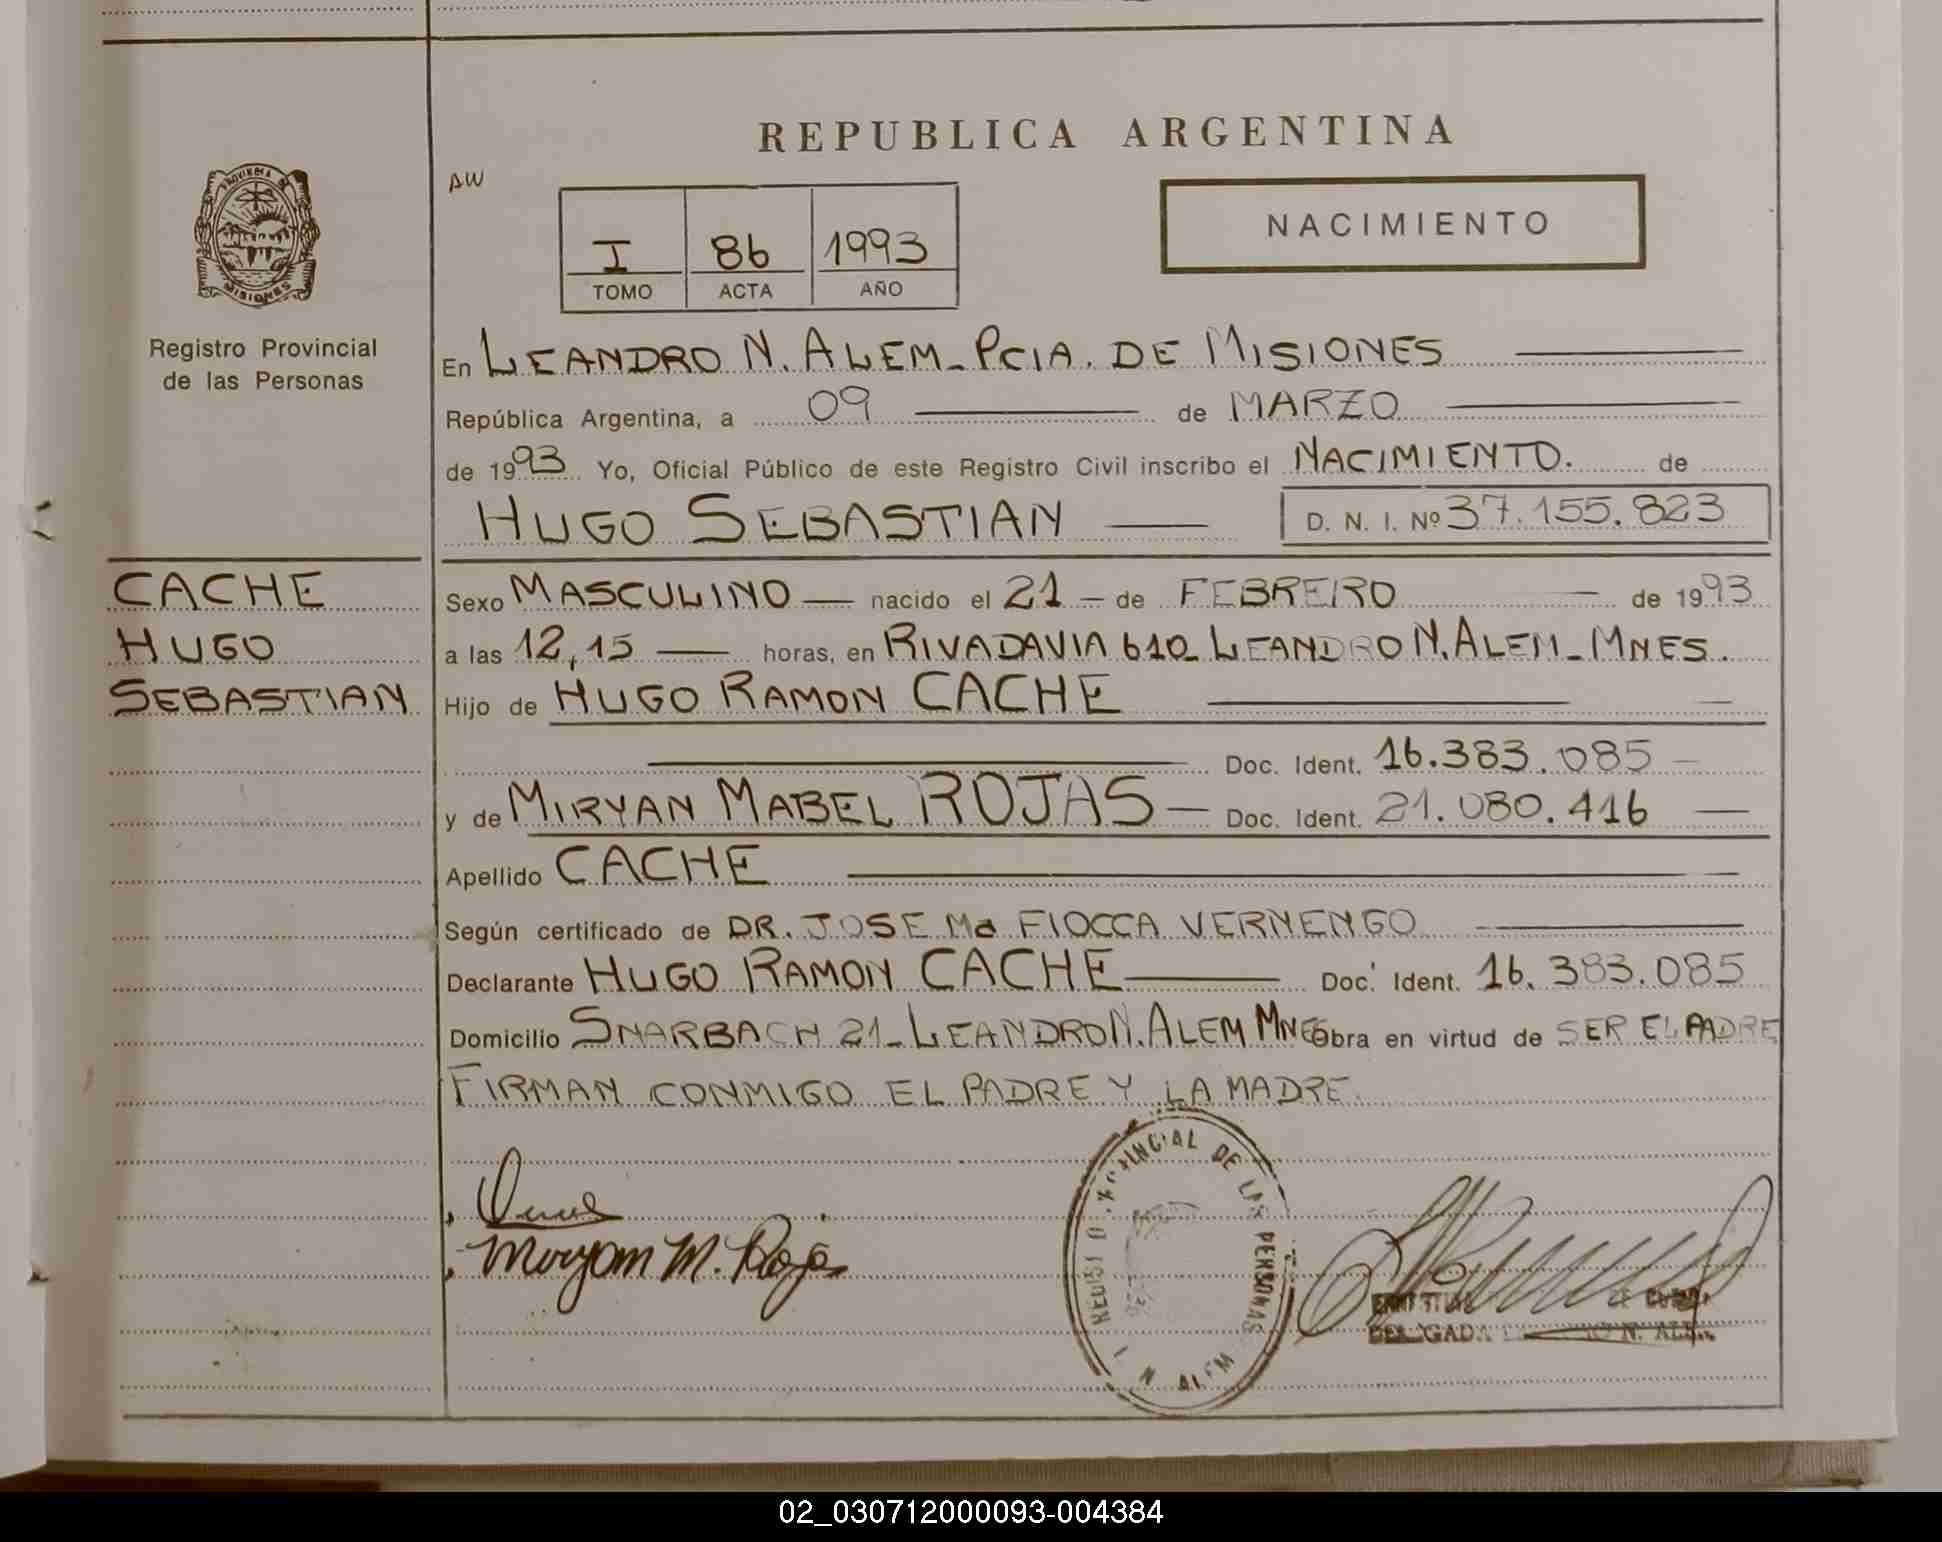 REPUBLICA ARGENTINA
PROVINCIA DE
MISIONES
AW
I 86 1993
TOMO ACTA AÑO
NACIMIENTO
Registro Provincial
de las Personas
En LEANDRO N. ALEM_PCIA. DE MISIONES
República Argentina, a 09 de MARZO
de 1993 Yo, Oficial Público de este Registro Civil inscribo el NACIMIENTO. de
HUGO SEBASTIAN D. N. I. Nº 37.155.823
CACHE
HUGO
SEBASTIAN
Sexo MASCULINO nacido el 21 de FEBRERO de 1993
a las 12,15 horas, en RIVADAVIA 610_LEANDRO N. ALEM_MNES.
Hijo de HUGO RAMON CACHE
Doc. Ident. 16.383.085
y de MIRYAN MABEL ROJAS Doc. Ident. 21.080.416
Apellido CACHE
Según certificado de DR. JOSE Ma FIOCCA VERNENGO
Declarante HUGO RAMON CACHE Doc. Ident. 16.383.085
Domicilio SNARBACH 21_LEANDRO N. ALEM MNES Obra en virtud de SER EL PADRE
FIRMAN CONMIGO EL PADRE Y LA MADRE.
Miryam M. Rojas
REGISTRO PROVINCIAL DE LAS PERSONAS
N ALEM
02_030712000093-004384